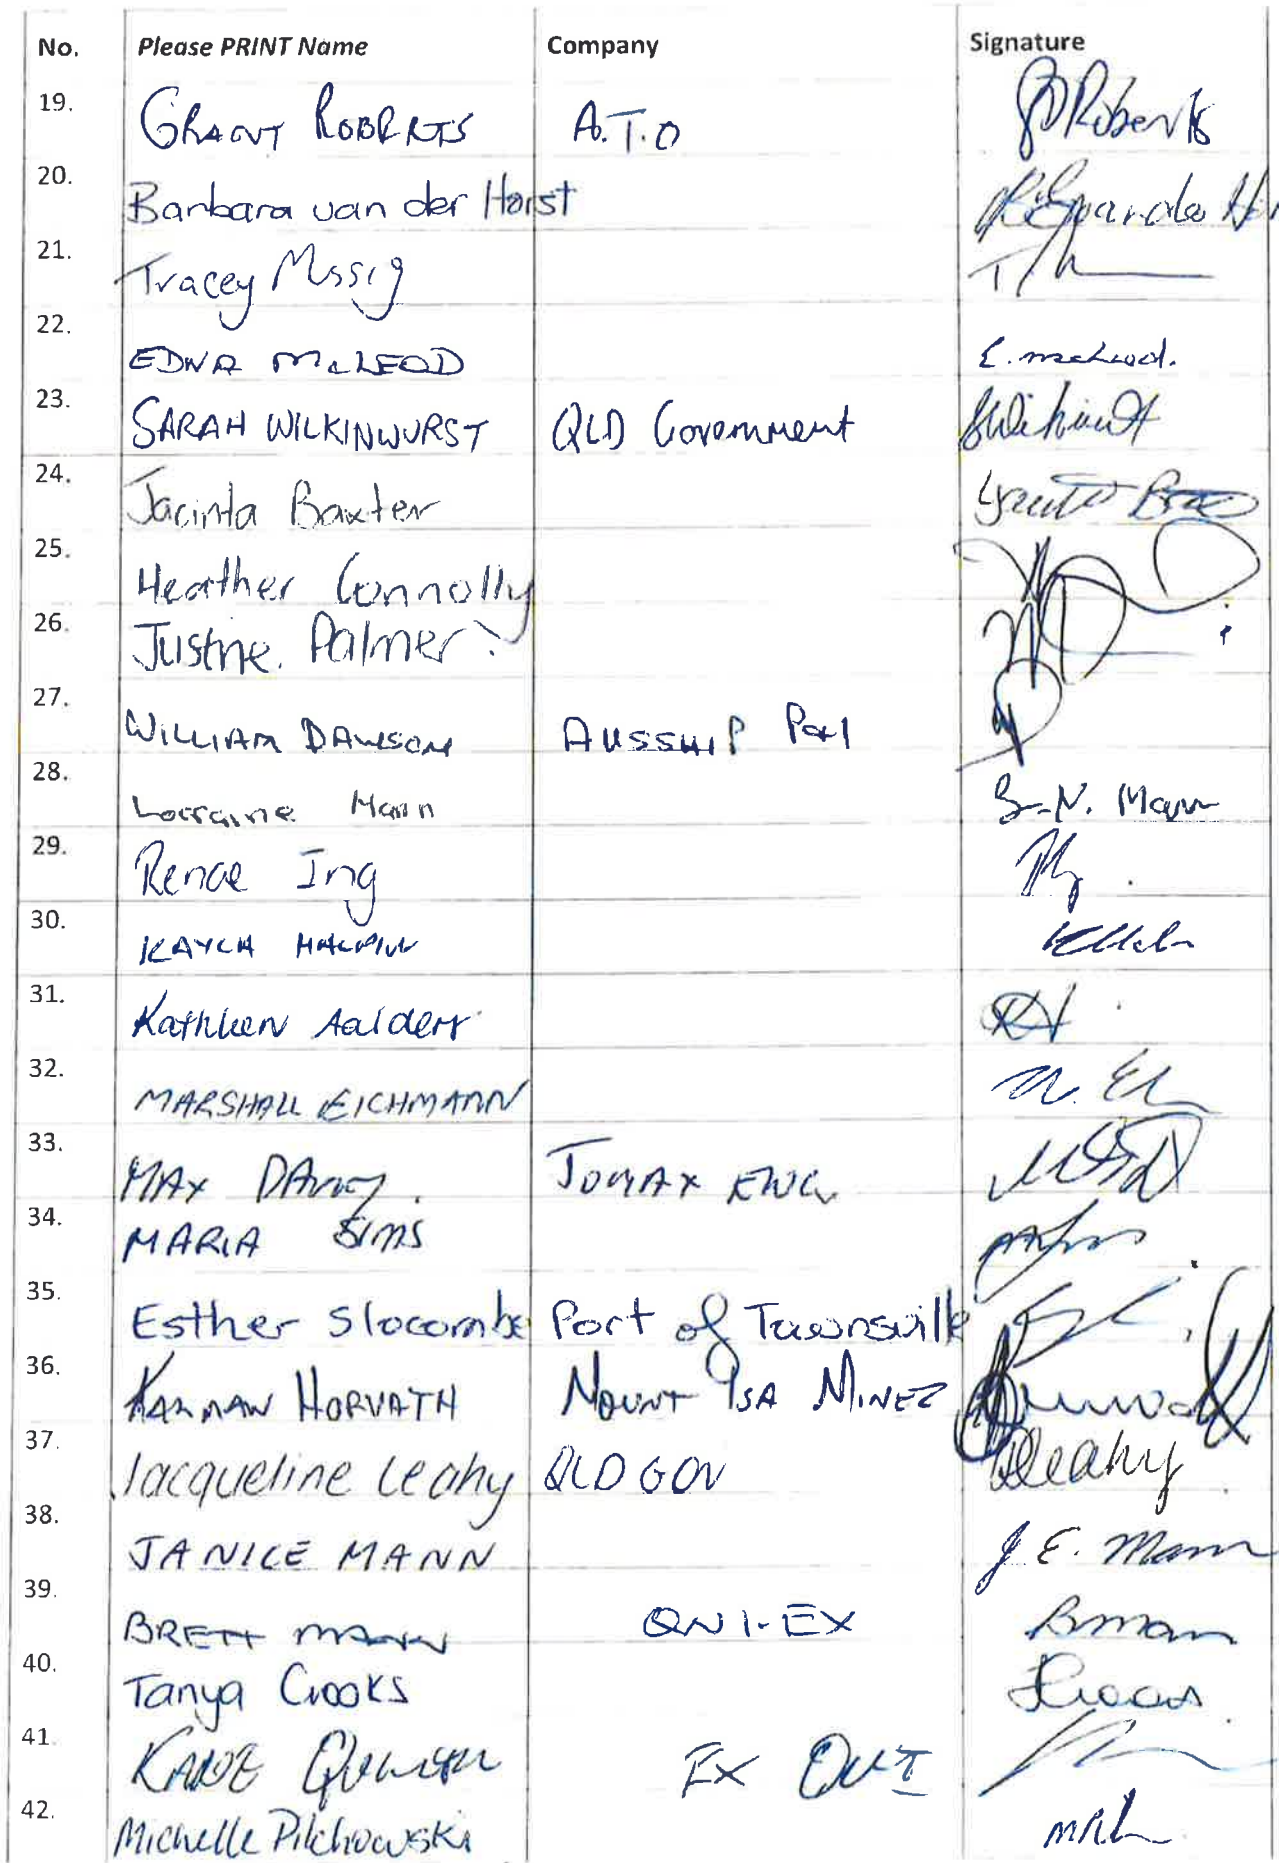 No. Please PRINT Name Company Signature
19. GRANT ROBERTS A.T.O Roberts
20. Barbara van der Horst
21. Tracey
22. EDNA McLEOD E. McLeod.
23. SARAH WILKINWURST QLD Government
24. Jacinta Baxter
25. Heather Connolly
26. Justine. Palmer
27. WILLIAM DAWSON AUSSHIP P&l
28. Lorraine Mann L-N. Mann
29. Renae Ing
30. KAYLA
31. Kathleen Aalders
32. MARSHALL EICHMANN
33. MAX DAVEY. JOMAX ENG.
34. MARIA SIMS
35. Esther Slocombe Port of Townsville
36. KALMAN HORVATH MOUNT ISA MINES
37. Jacqueline Leahy QLD GOV Leahy
38. JANICE MANN J. E. Mann
39. BRETT MANN QNI-EX BMann
40. Tanya Crooks
41. EX
42. Michelle Pilchowski